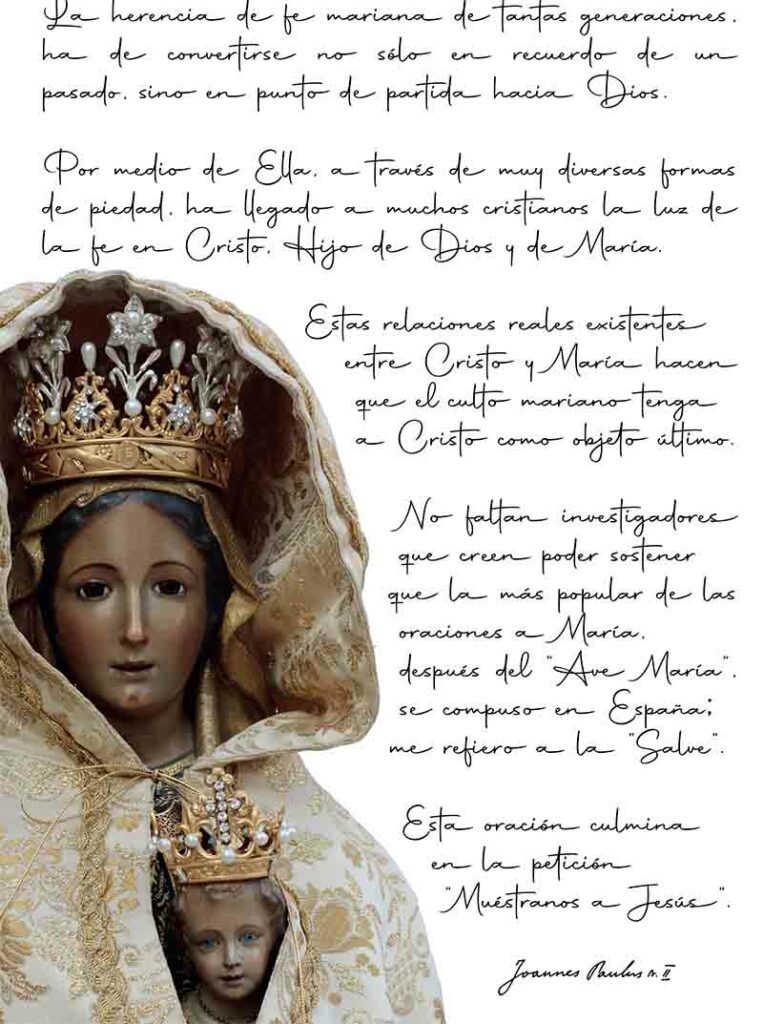 La herencia de fe mariana de tantas generaciones,
ha de convertirse no sólo en recuerdo de un
pasado, sino en punto de partida hacia Dios.
Por medio de Ella, a través de muy diversas formas
de piedad, ha llegado a muchos cristianos la luz de
la fe en Cristo, Hijo de Dios y de María.
Estas relaciones reales existentes
entre Cristo y María hacen
que el culto mariano tenga
a Cristo como objeto último.
No faltan investigadores
que creen poder sostener
que la más popular de las
oraciones a María,
después del "Ave María",
se compuso en España;
me refiero a la "Salve".
Esta oración culmina
en la petición
"Muéstranos a Jesús".
Joannes Paulus PP. II